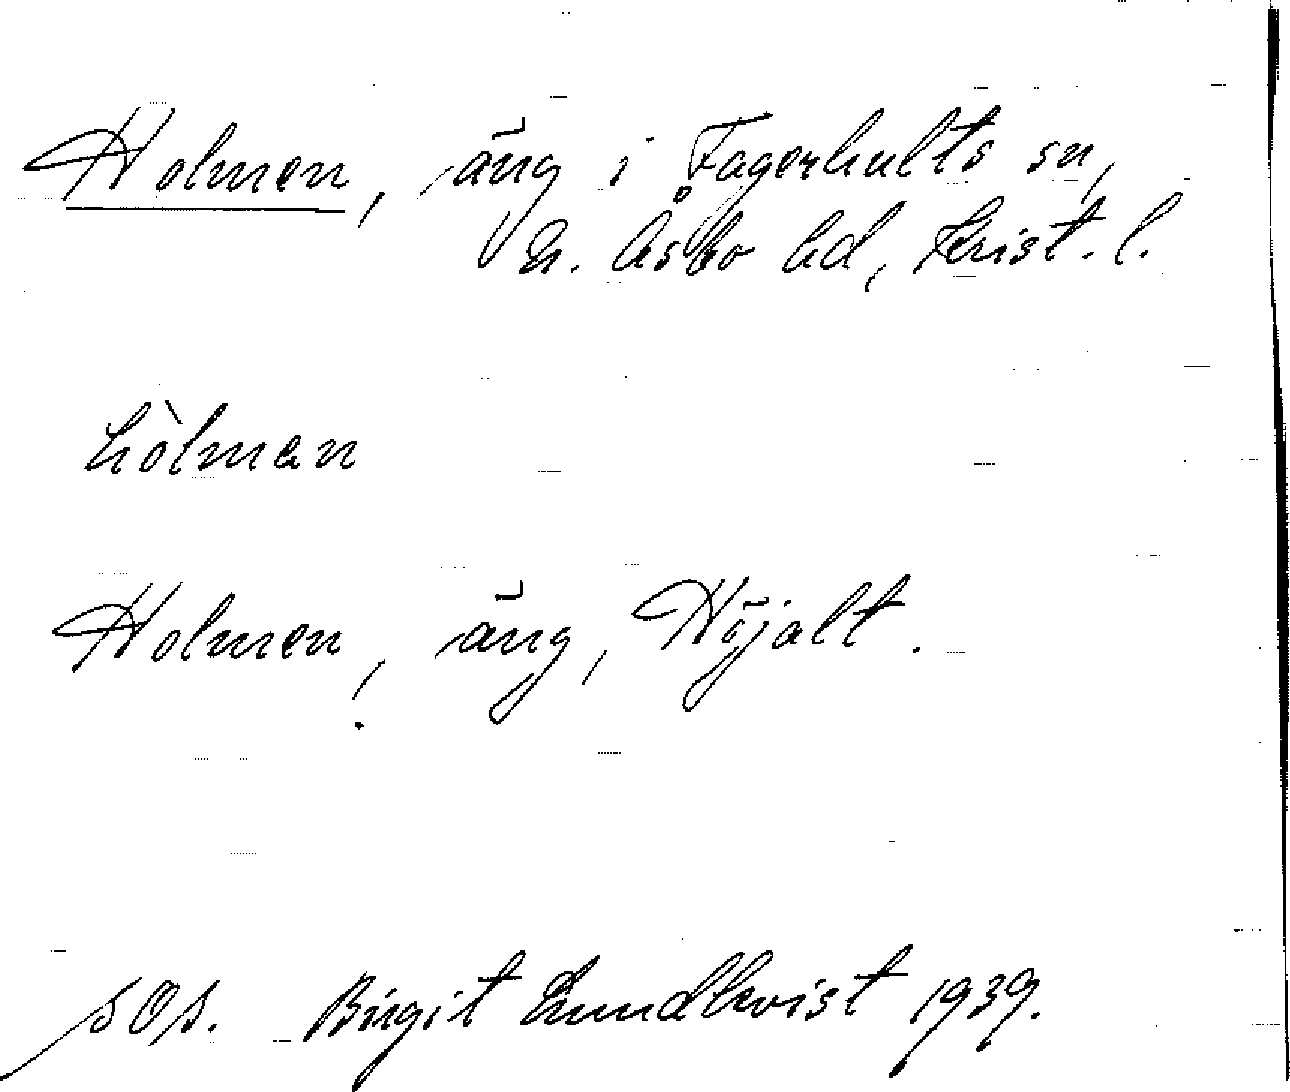 Holmen, äng i Fagerhults sn,
N. Åsbo hd, Krist. l.
hòlman
Holmen, äng, Höjalt.
sOs. Birgit Lundkvist 1939.